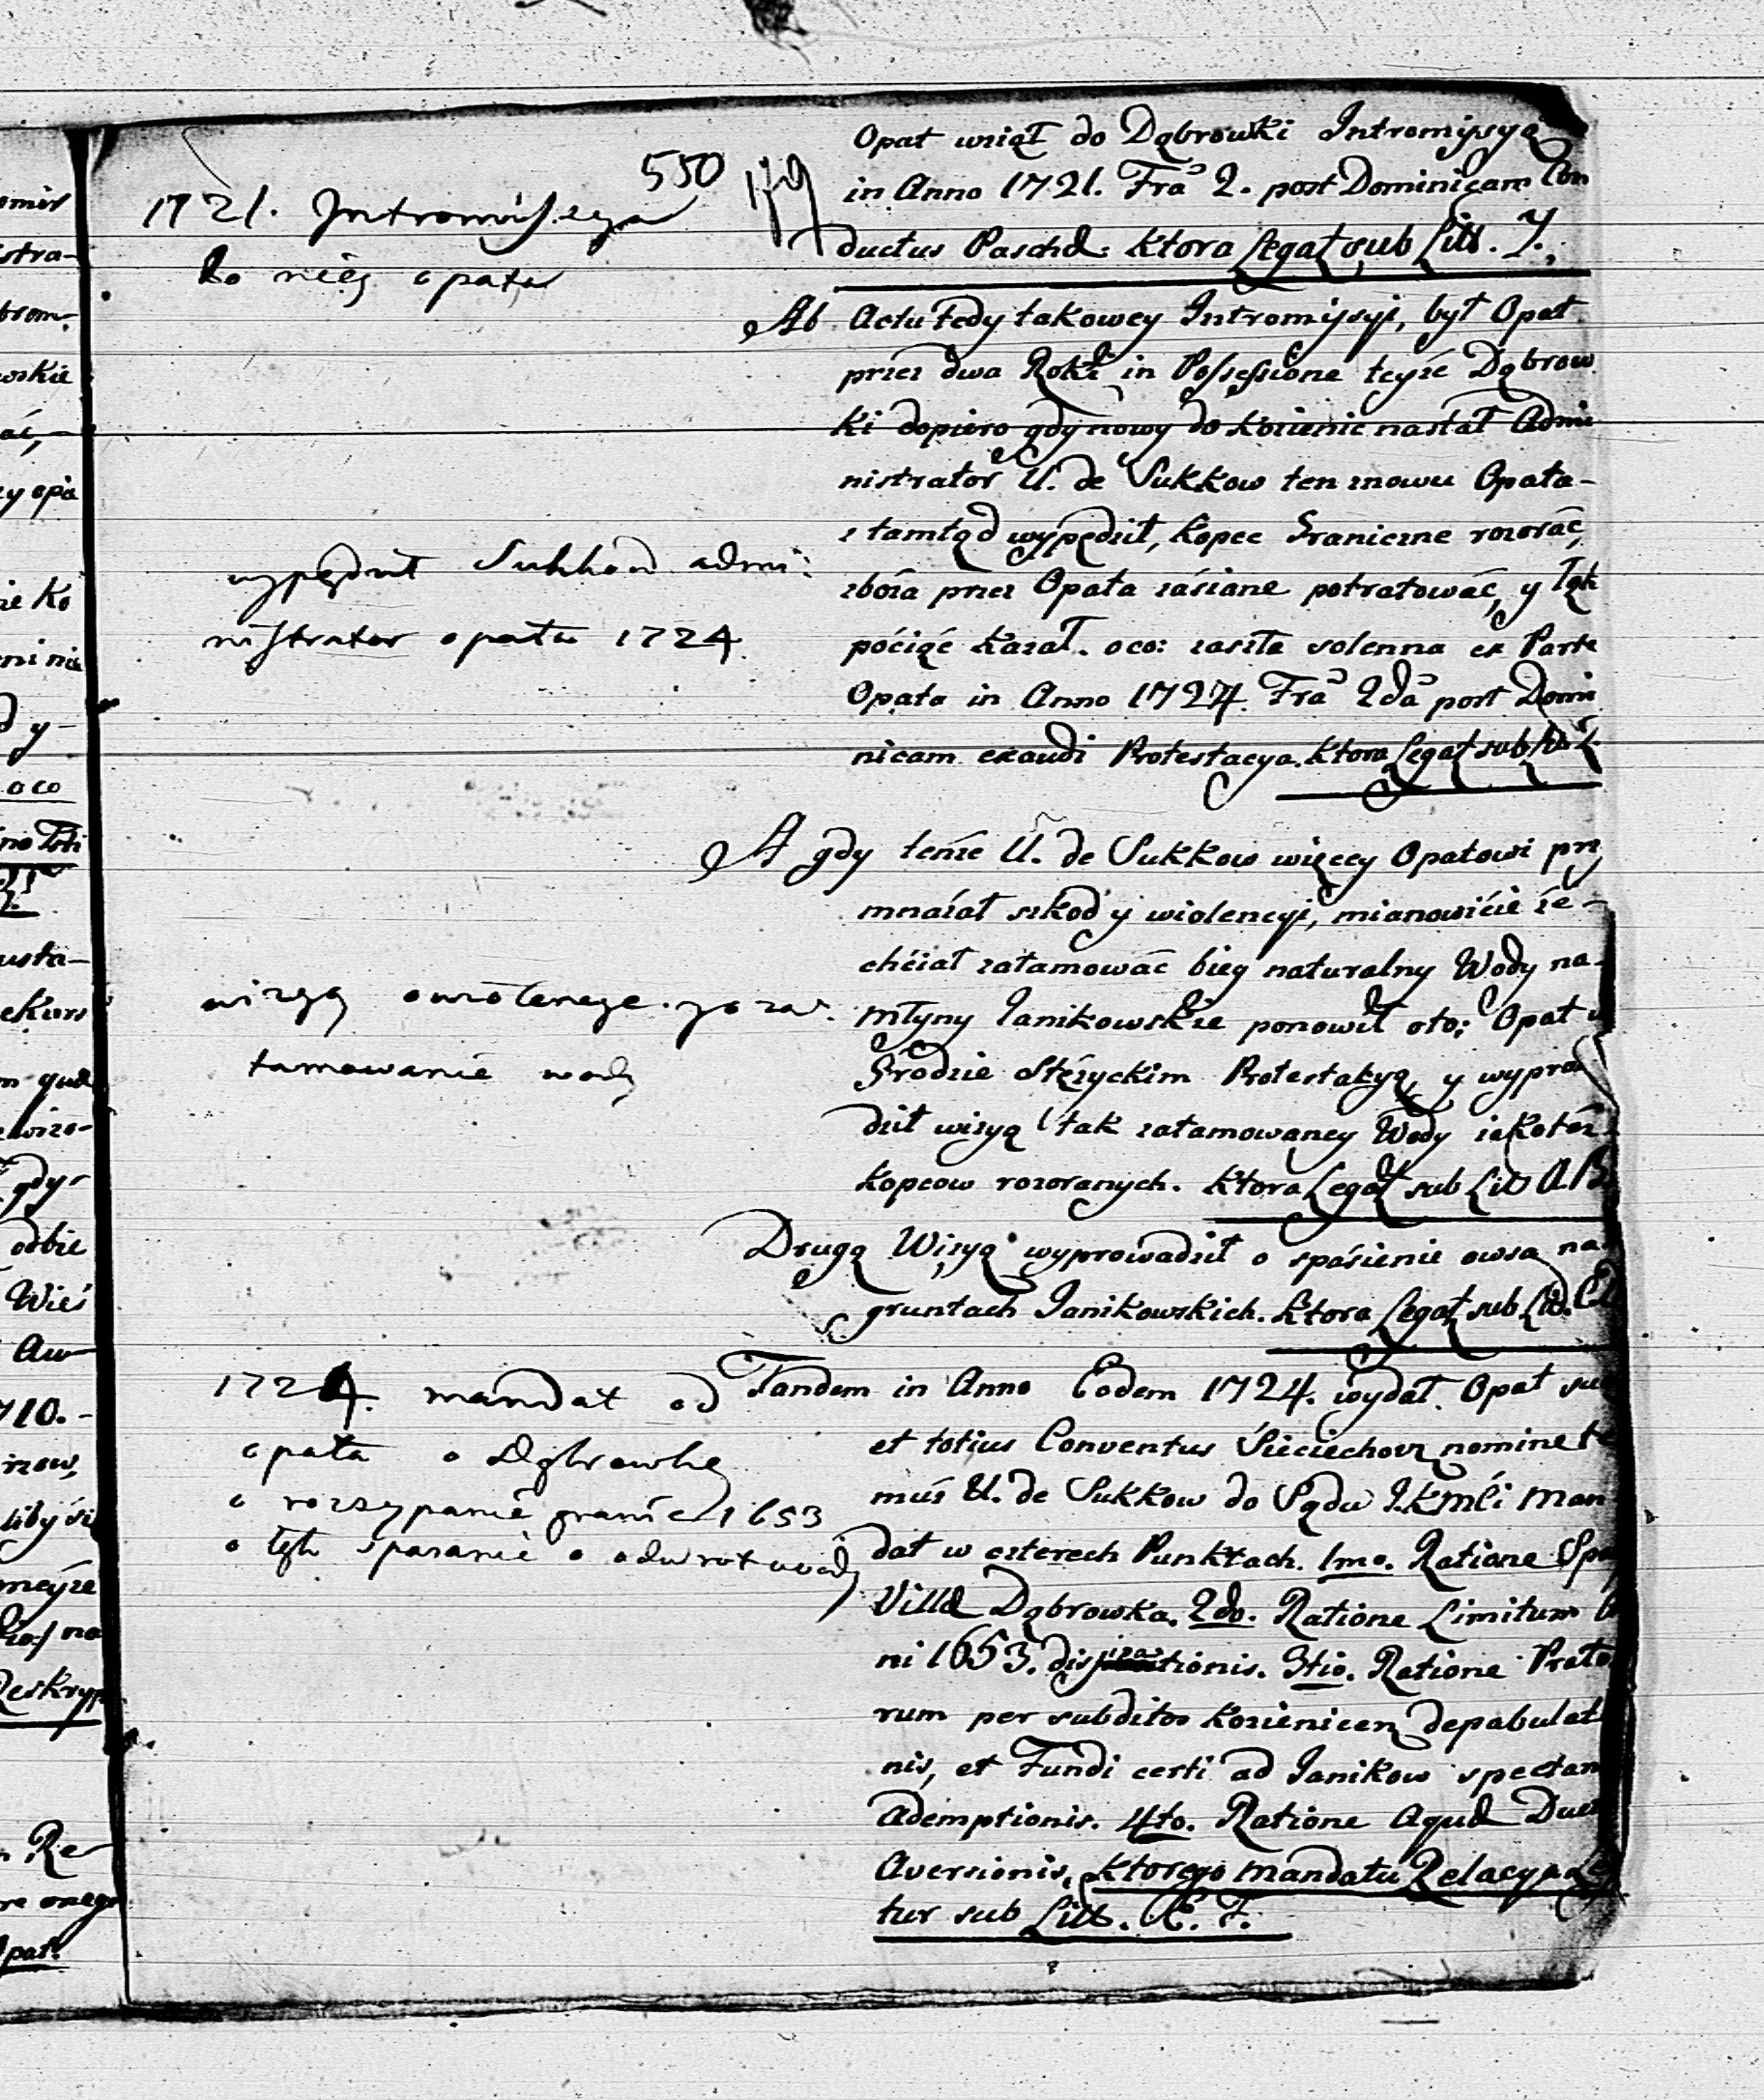 550
179
1721. Intromissya
do niey opata
Opat wziął do Dąbrowki Intromissyą
in Anno 1721. Fra 2. post Dominicam Con
ductus Pascha. ktora Legat sub Litt. Y.
Ab Actu tedy takowey Intromissyi, był Opat
przez dwa Roki in Possessione teyże Dąbrow
ki dopiero gdy nowy do Kozienic nastał Admi
nistrator U. de Sukkow ten znowu Opata-
z tamtąd wypędził, kopce Graniczne rozorać,
zboża przez Opata zásiane potratować, y Łąk
pociąć kazał. oco: zaszła solenna ex Parte
Opata in Anno 1724. Fra 2da post Domi
nicam exaudi Protestacya. ktora Legat sub Litt Z
wypędził Sukkow admi:
nistrator opata 1724
A gdy tenże U. de Sukkow więcey Opatowi prz
mnażał szkod y wiolencyi, mianowićie że-
chćiał zatamować bieg naturalny Wody na-
młyny Janikowskie ponowił oto: Opat w
Grodzie Stężyckim Protestacyą, y wypro
dził wizyą tak zatamowaney Wody iakoteż
kopcow rozoranych. ktora Legat sub Litt A.B.
wizyą za
tamowanie wody
Drugą Wizyą wyprowadził o spásienie owsa na
gruntach Janikowskich. ktora Legat sub Lit.
Tandem in Anno Eodem 1724. wydał Opat suo
et totius Conventus Sieciechov nomine te
muż U. de Sukkow do Sądu J.KMći Man
dat w czterech Punktach. 1mo. Ratione Spo
Villa Dąbrowka. 2do. Ratione Limitum
ni 1653. dissipationis. 3tio. Ratione Prato
rum per subditos Kozienicen depabulat
nis, et Fundi certi ad Janikow spectan
Ademptionis. 4to. Ratione Aqua Duct
Aversionis, ktorego mandatu Relacya Le
tur sub Litt. E. F.
1724. mandat od
opata o Dąbrowkę
o rozsypanie granic 1653
o łąk spasanie o odwrot wody